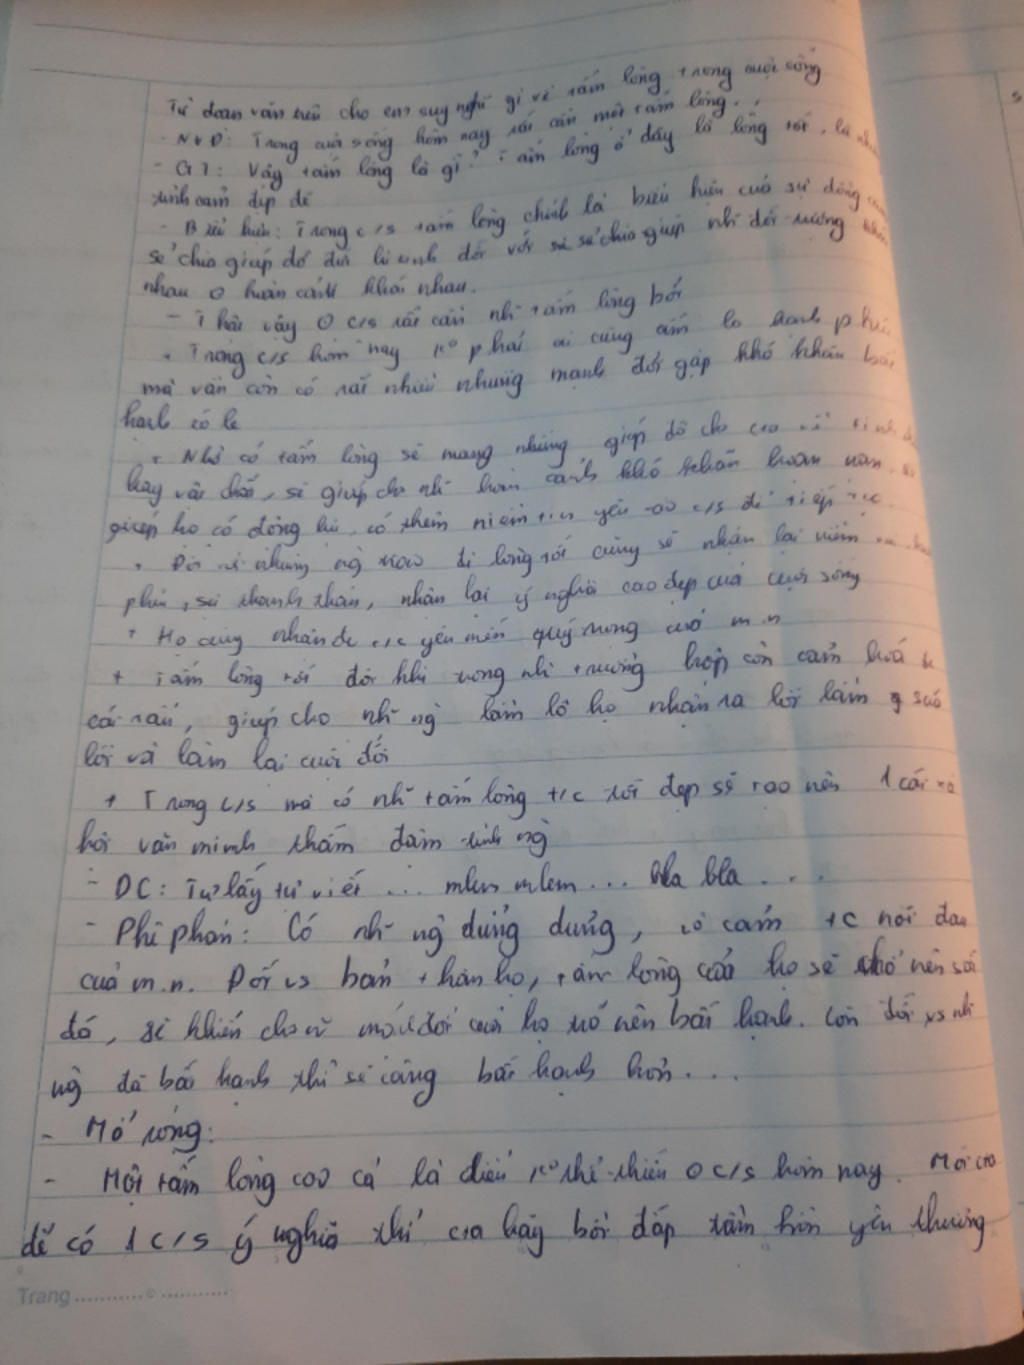 Từ đoạn văn trên cho em suy nghĩ gì về tấm lòng trong cuộc sống
- NVĐ: Trong cuộc sống hôm nay rất cần một tấm lòng.
- GT: Vậy tấm lòng là gì? Tấm lòng ở đây là lòng tốt, là
tình cảm đẹp đẽ
- Biểu hiện: Trong c/s tấm lòng chính là biểu hiện của sự đồng
sẻ chia giúp đỡ đối với sẻ chia giúp nh~ đối tượng khác
nhau ở hoàn cảnh khác nhau.
- Thật vậy ở c/s rất cần nh~ tấm lòng bởi
+ Trong c/s hôm nay k° phải ai cũng ấm lo hạnh phúc
mà vẫn còn có rất nhiều những mảnh đời gặp khó khăn bất
hạnh có lẽ
+ Nhờ có tấm lòng sẽ mang những giúp đỡ cho cta về tinh
hay vật chất, sẽ giúp cho nh~ hoàn cảnh khó khăn hoạn nạn,
giúp họ có động lực, có thêm niềm tin yêu vào c/s để tiếp tục
+ Đối với những ng` trao đi lòng tốt cũng sẽ nhận lại niềm
phúc, sự thanh thản, nhận lại ý nghĩa cao đẹp của cuộc sống
+ Họ cũng nhận đc t/c yêu mến quý trọng của m.n
+ Tấm lòng tốt đôi khi trong nh~ trường hợp còn cảm hoá đc
cái xấu, giúp cho nh~ ng` lầm lỡ họ nhận ra lỗi lầm sửa
lỗi và làm lại cuộc đời
+ Trong c/s mà có nh~ tấm lòng t/c tốt đẹp sẽ tạo nên 1 cái xã
hội văn minh thấm đậm tình ng`
- DC: Tự lấy tự viết ... mlem mlem ... bla bla ...
- Phê phán: Có nh~ ng` dửng dưng, vô cảm tc nỗi đau
của m.n. Đối vs bản thân họ, tấm lòng của họ sẽ trở nên sỏi
đá, sẽ khiến cho cuộc đời của họ trở nên bất hạnh. Còn đối vs nh~
ng` đã bất hạnh thì sẽ càng bất hạnh hơn...
- Mở rộng:
- Một tấm lòng cao cả là điều k° thể thiếu ở c/s hôm nay. Mỗi cta
để có 1 c/s ý nghĩa thì cta hãy bồi đắp tâm hồn yêu thương
Trang